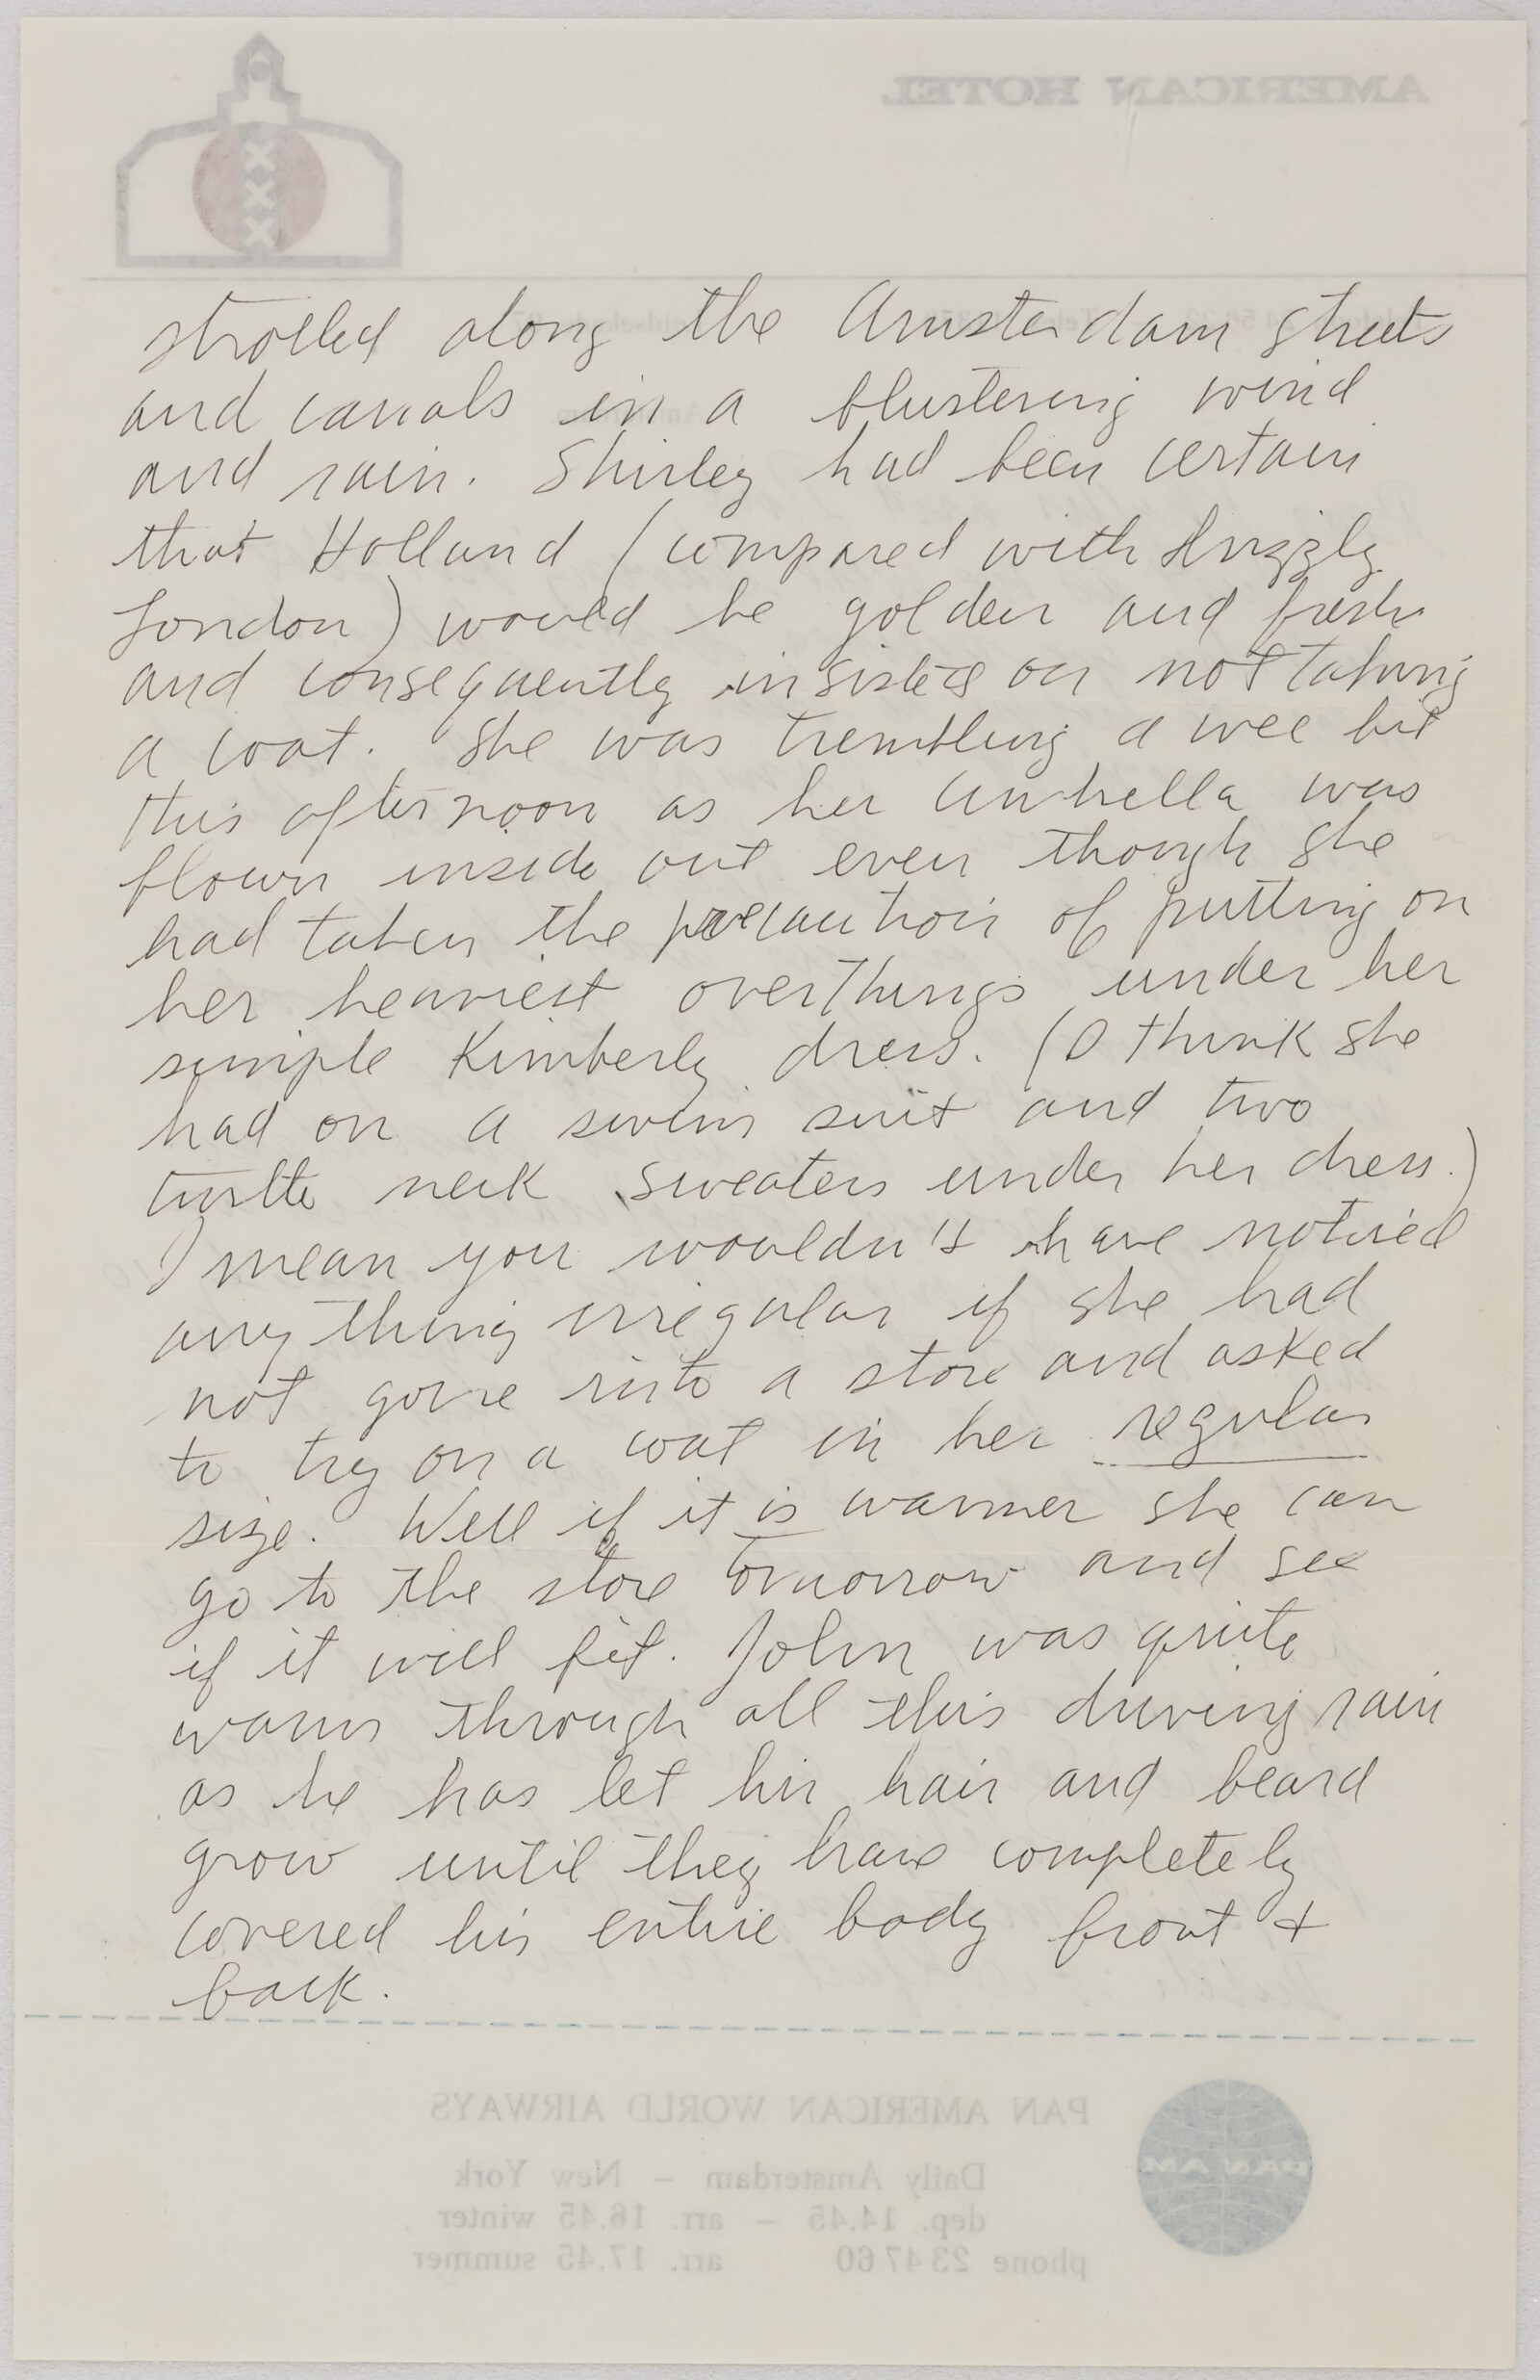 AMERICAN HOTEL
strolled along the Amsterdam streets
and canals in a blustering wind
and rain. Shirley had been certain
that Holland (compared with drizzly
London) would be golden and fresh
and consequently insisted on not taking
a coat. She was trembling a wee bit
this afternoon as her umbrella was
blown inside out even though she
had taken the precaution of putting on
her heaviest overthings under her
simple Kimberly dress. (I think she
had on a swim suit and two
turtle neck sweaters under her dress.)
I mean you wouldn't have noticed
anything irregular if she had
not gone into a store and asked
to try on a coat in her regular
size. Well if it is warmer she can
go to the store tomorrow and see
if it will fit. John was quite
warm through all this driving rain
as he has let his hair and beard
grow until they have completely
covered his entire body front +
back.
PAN AMERICAN WORLD AIRWAYS
Daily Amsterdam – New York
dep. 14.45 – arr. 16.45 winter
phone 234760 arr. 17.45 summer
PAN AM